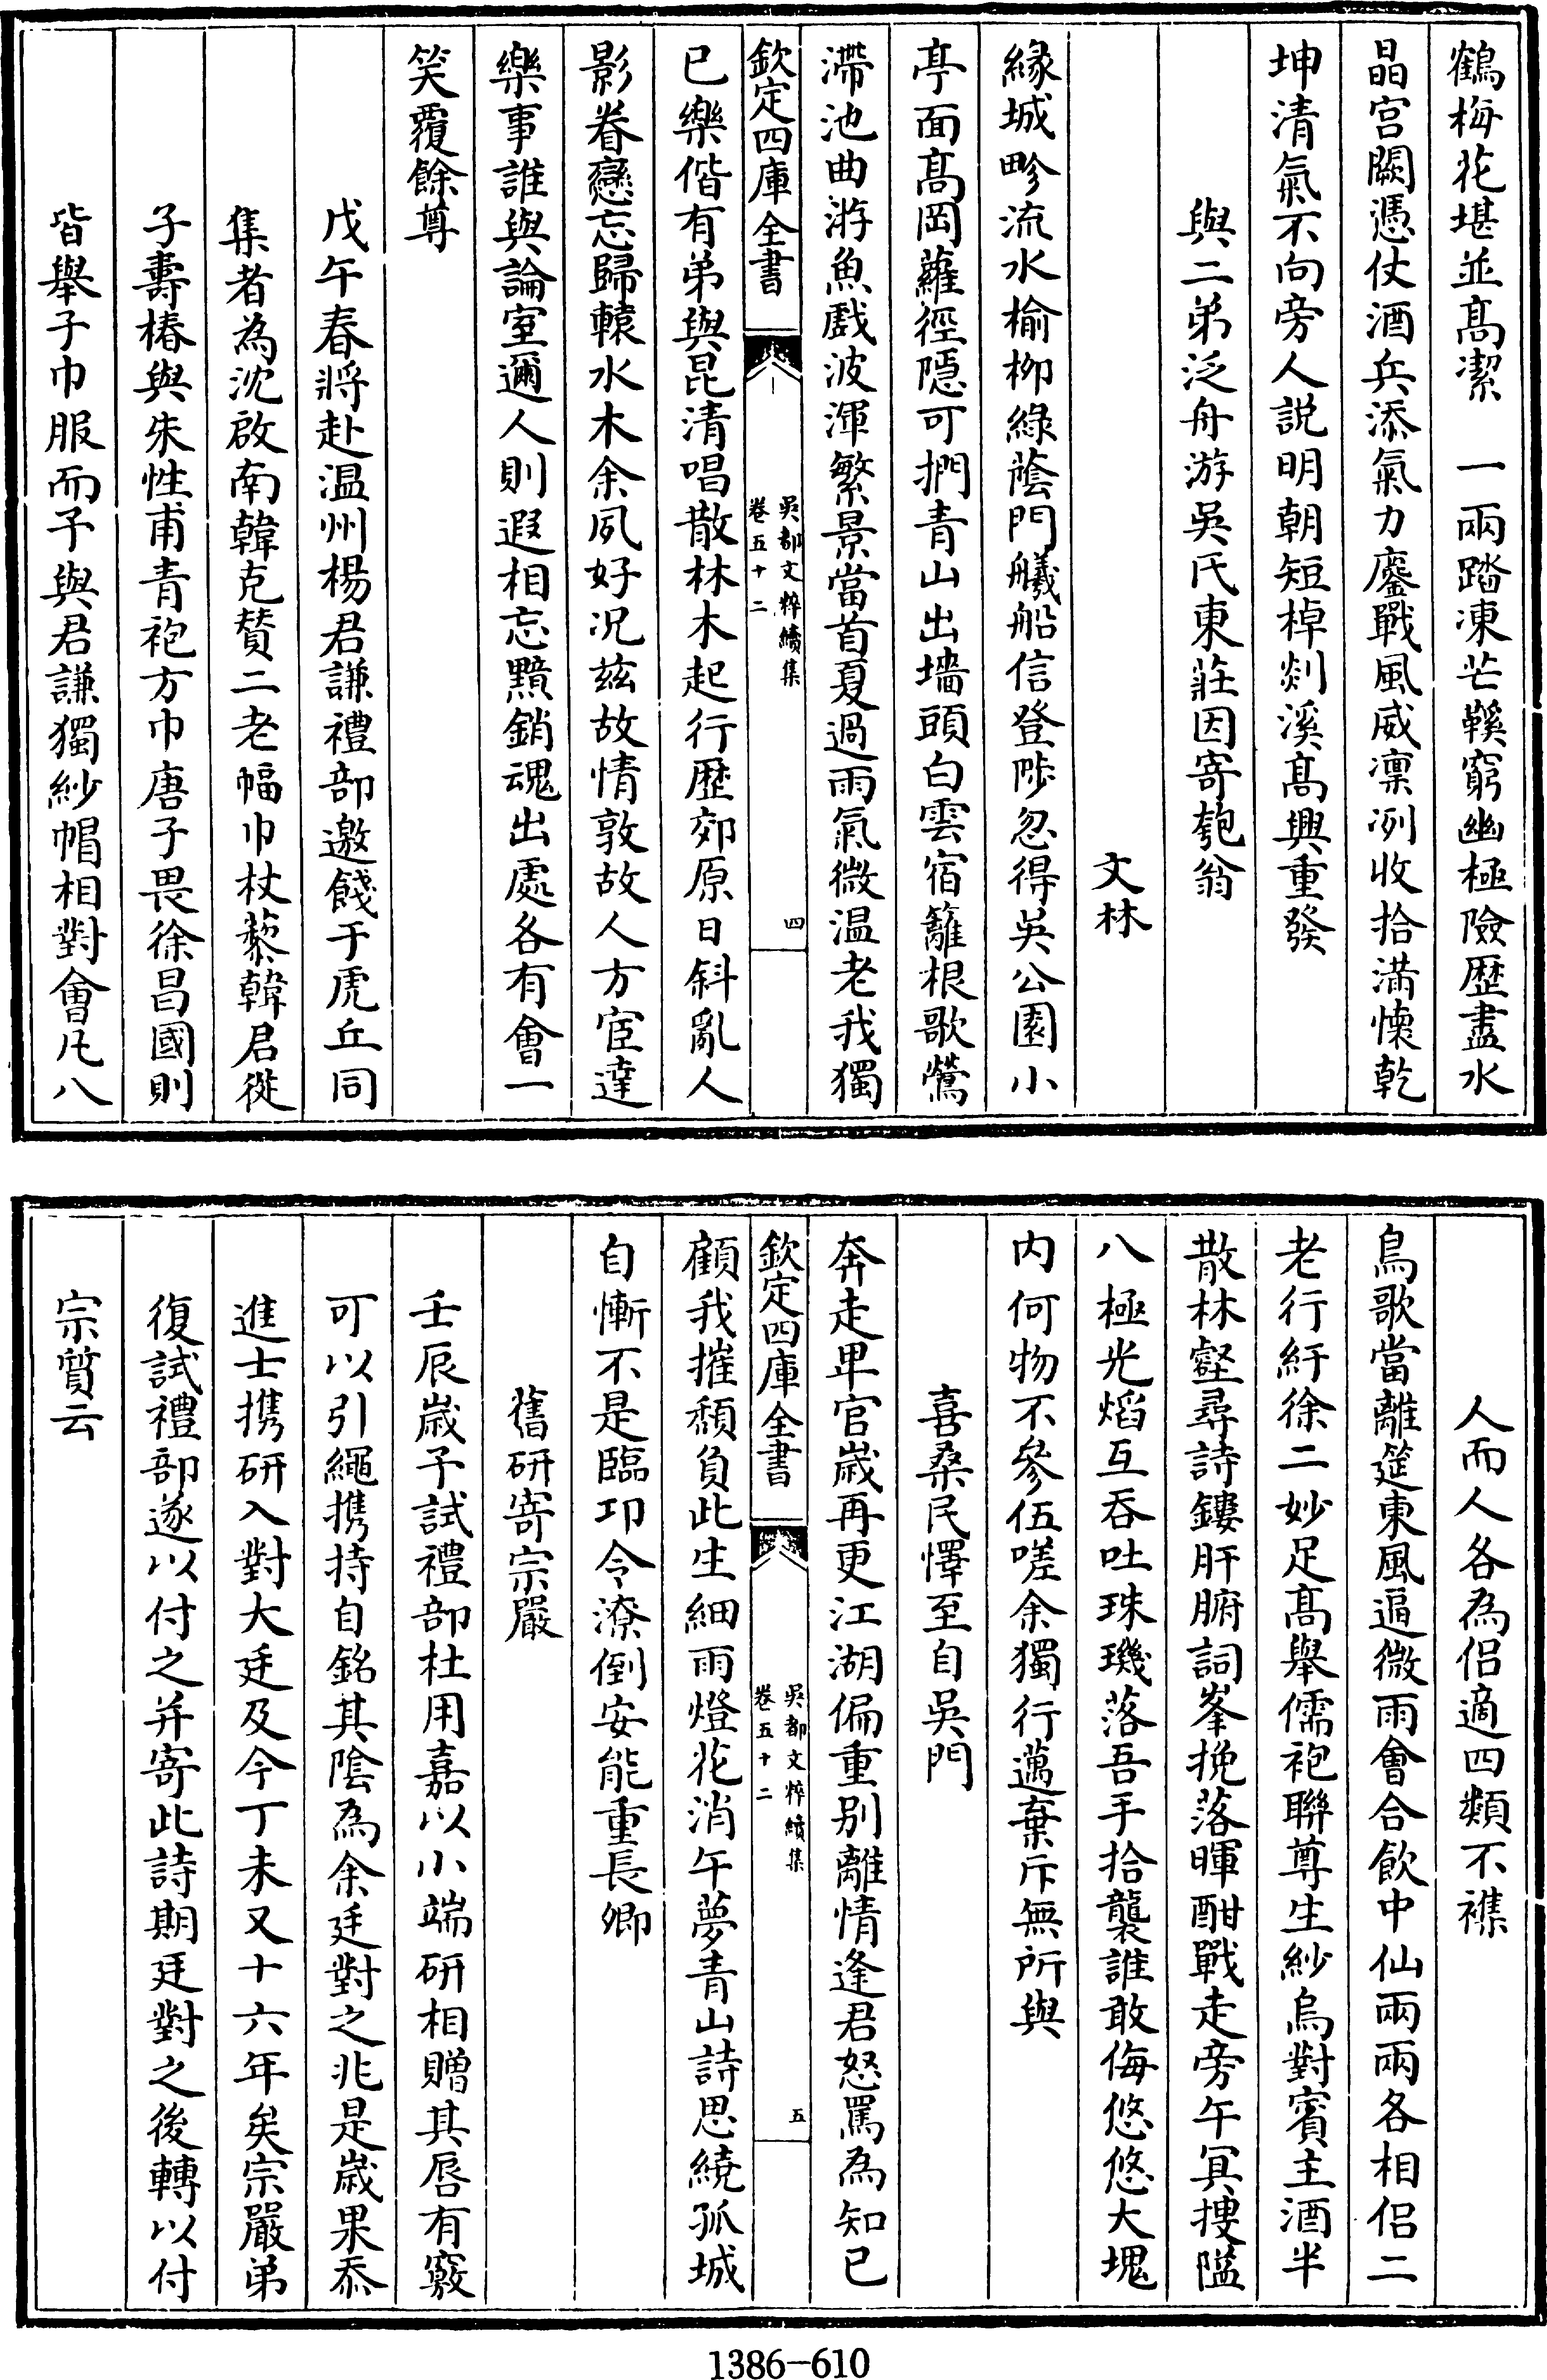 鶴梅花堪並髙潔　一兩踏凍芒鞵窮幽極險歴盡水
晶宫闕憑仗酒兵添氣力鏖戰風威凛冽收拾滿懐乾
坤清氣不向旁人説明朝短棹剡溪髙興重發
與二弟泛舟游吳氏東莊因寄匏翁
文林
緣城畛流水榆柳緑蔭門艤船信登陟忽得吳公園小
亭面髙岡蘿徑隠可捫青山出墻頭白雲宿籬根歌鶯
滯池曲游魚戲波渾繁景當首夏過雨氣微温老我獨
欽定四庫全書
吳都文粹續集
卷五十二
四
已樂偕有弟與昆清唱散林木起行歴郊原日斜亂人
影眷戀忘歸轅水木余夙好况兹故情敦故人方宦達
樂事誰與論室邇人則遐相忘黯銷魂出處各有會一
笑覆餘尊
戊午春將赴温州楊君謙禮部邀餞于虎丘同
集者為沈啟南韓克賛二老幅巾杖藜韓君從
子壽椿與朱性甫青袍方巾唐子畏徐昌國則
皆舉子巾服而予與君謙獨紗帽相對會凡八
人而人各為侶適四類不襍
鳥歌當離筵東風遍微雨會合飲中仙兩兩各相侶二
老行紆徐二妙足髙舉儒袍聯尊生紗烏對賓主酒半
散林壑尋詩鏤肝腑詞峯挽落暉酣戰走旁午冥搜隘
八極光熖互吞吐珠璣落吾手拾襲誰敢侮悠悠大塊
内何物不參伍嗟余獨行邁棄斥無所與
喜桑民懌至自吳門
奔走卑官歳再更江湖偏重别離情逢君怒罵為知已
欽定四庫全書
吳都文粹續集
卷五十二
五
顧我摧頹負此生細雨燈花消午夢青山詩思繞孤城
自慚不是臨邛令潦倒安能重長卿
舊硏寄宗嚴
壬辰歳予試禮部杜用嘉以小端硏相贈其唇有竅
可以引繩携持自銘其隂為余廷對之兆是歳果忝
進士携硏入對大廷及今丁未又十六年矣宗嚴弟
復試禮部遂以付之并寄此詩期廷對之後轉以付
宗質云
1386—610